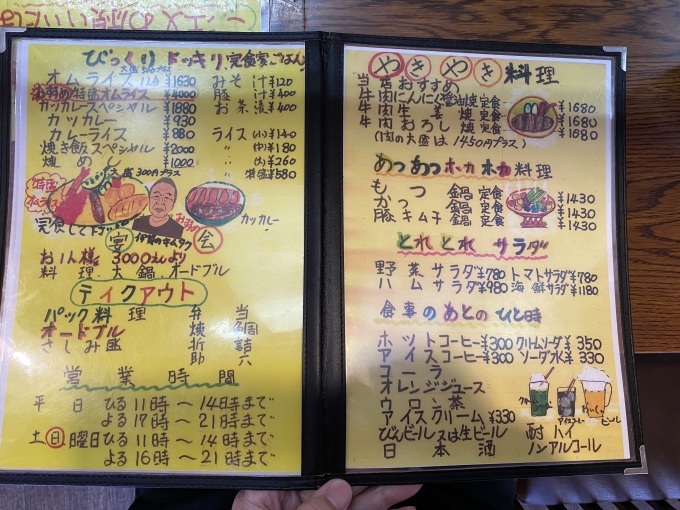 びっくりドッキリ定食家ごはん
大盛500円プラス
オムライス ¥1630
お羽め特盛オムライス ¥4000
カツカレースペシャル ¥1880
カツカレー ¥930
カレーライス ¥880
焼き飯スペシャル ¥2000
焼めし ¥1000
大盛300円プラス
みそ汁 ¥120
豚汁 ¥400
お茶漬 ¥400
ライス(小) ¥140
〃(中) ¥180
〃(大) ¥260
〃特盛 ¥580
特盛
オムライス
カツカレー
宴会
お1人様3000円より
料理.大鍋.オードブル
テイクアウト
パック料理 弁当
オードブル 煉鯛
さしみ盛 折詰
助六
営業時間
平日 ひる11時〜14時まで
よる17時〜21時まで
土日曜日ひる11時〜14時まで
よる16時〜21時まで
やきやき料理
当店おすすめ
牛肉にんにく醤油焼定食 ¥1680
牛肉生姜焼定食 ¥1680
牛肉おろし焼定食 ¥1680
(肉の大盛は1450円プラス)
あつあつホカホカ料理
もつ鍋定食 ¥1430
かつ鍋定食 ¥1430
豚キムチ鍋定食 ¥1430
とれとれサラダ
野菜サラダ¥780 トマトサラダ¥780
ハムサラダ¥980 海鮮サラダ¥1180
食事のあとのひと時
ホットコーヒー¥300 クリームソーダ¥350
アイスコーヒー¥300 ソーダ水¥330
コーラ
オレンジジュース
ウーロン茶
アイスクリーム ¥330
びんビール又は生ビール 酎ハイ
日本酒 ノンアルコール
ビール